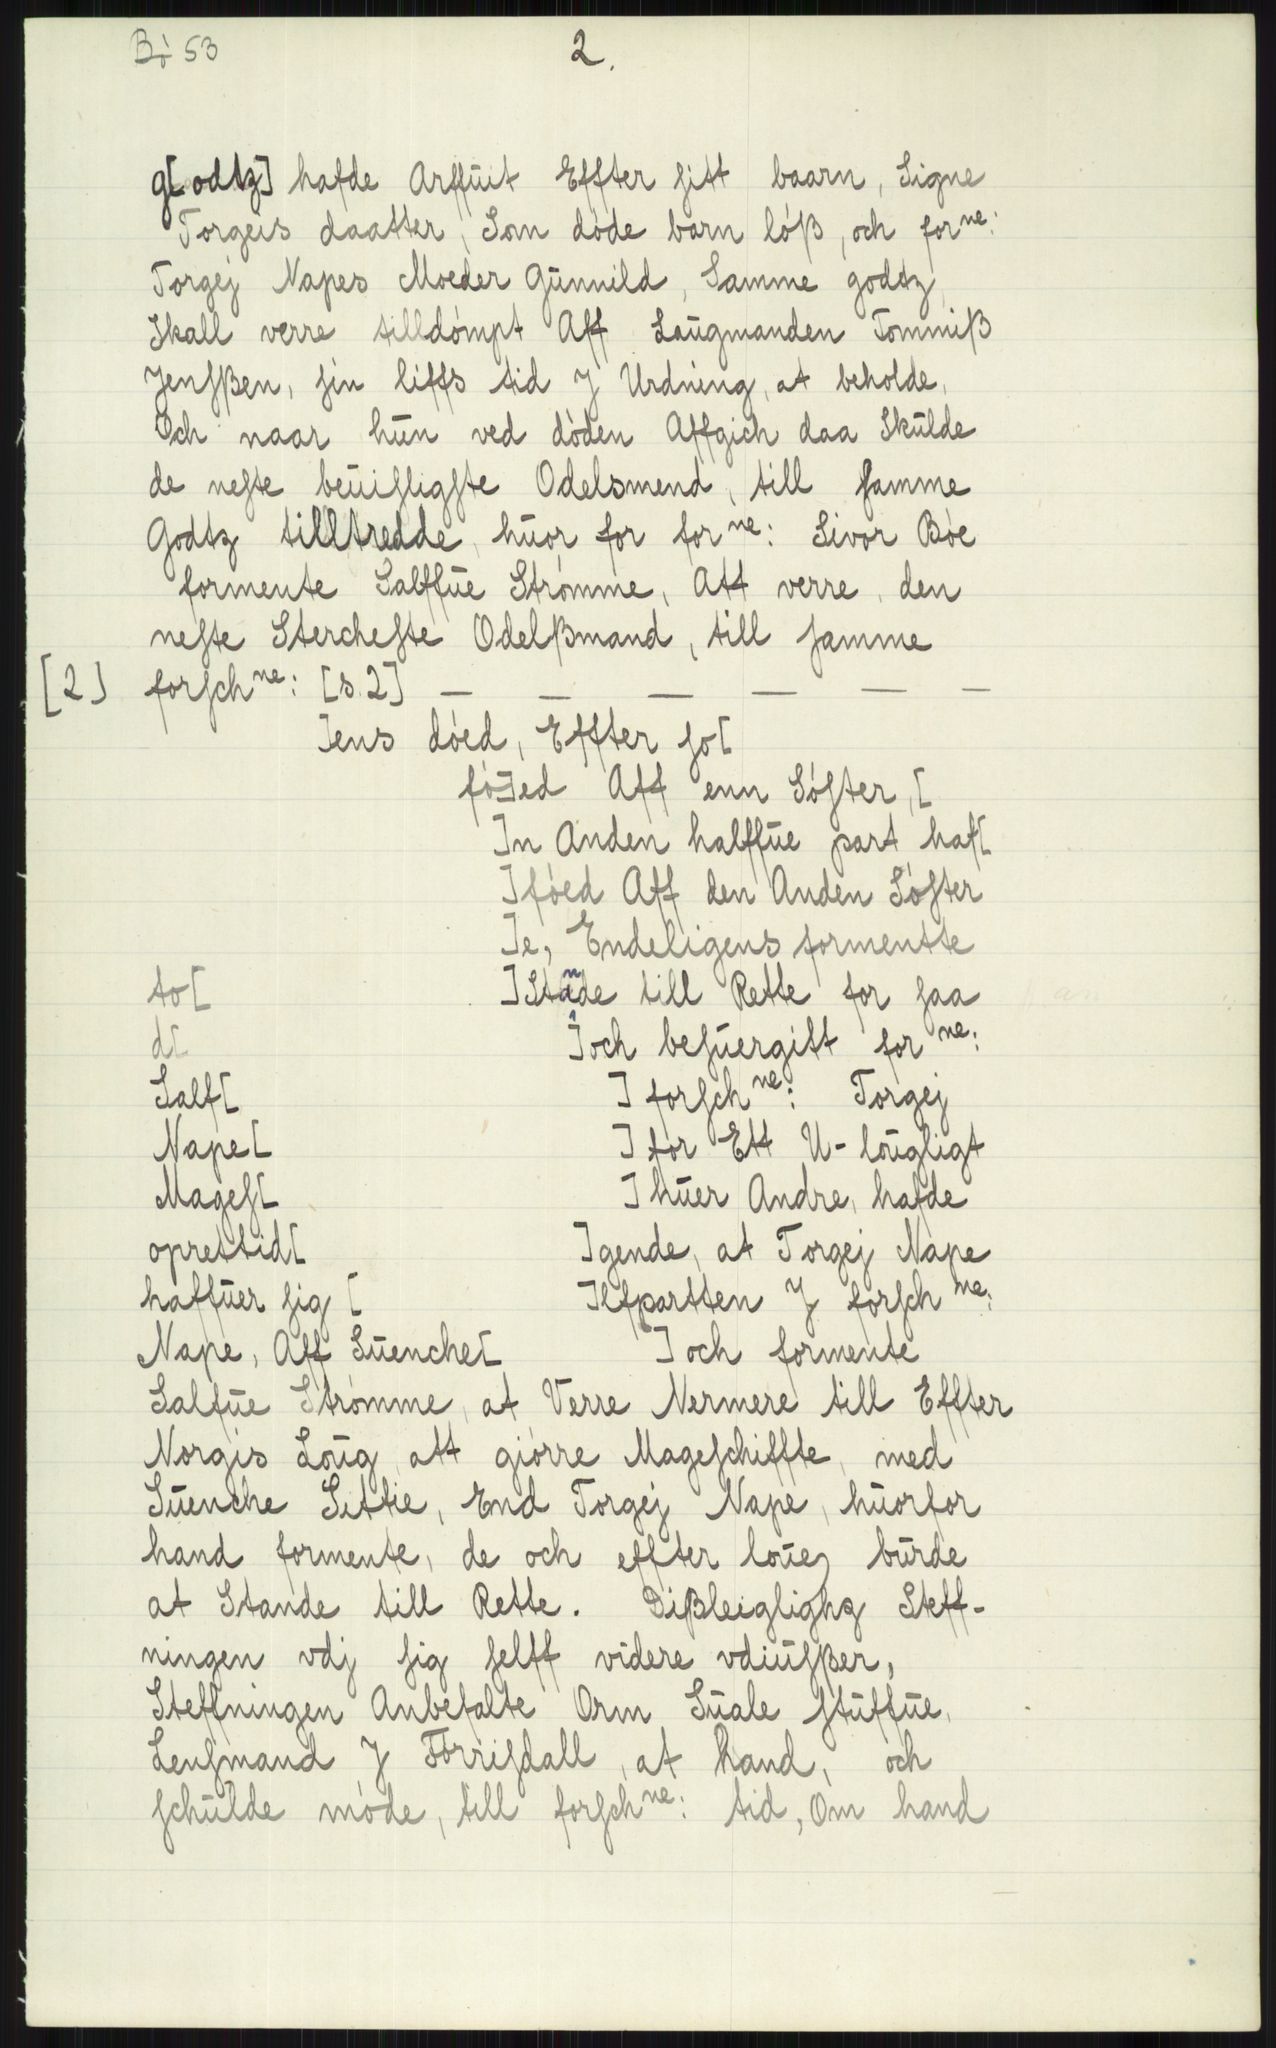 Bò 53
2.
g[odtz] hafde Arffūit Effter sitt baarn, Signe
Torgeis daatter, Som dóde barn lóß, och forne:
Torgej Napes Moeder Gūnnild, Samme godtz
Skall verre tilldómpt Aff Laūgmanden Tommiß
Jensßen, sin liffs tid J Urdning, at beholde,
Och naar hūn ved dóden Affgich daa Skūlde
de neste beūisligste Odelsmend, till samme
Godtz tilltredde, hūor for forne: Sivor Bóe
formente Salffūe Strómme, Att verre, den
neste Stercheste Odelßmand, till samme
[2] forschne: [s.2] — — — — — —
]ens dóed, Effter so[
fó]ed Aff enn Sóster, [
]n Anden halffūe part haf[
]fóed Aff den Anden Sóster
]e, Endeligens formentte
to[ ]Stande till Rette for saa
d[ ]och besūergitt forne:
Salf[ ] forschne: Torgej
Nape[ ] for Ett U-loūgligt
Mages[ ] hūer Andre, hafde
oprettid[ ]gende, at Torgej Nape
haffūer sig [ ]lfpartten J forschne:
Nape, Aff Sūenche[ ] och formente
Salfūe Strómme, at Verre Nermere till Effter
Norgis Loūg att giórre Mageschiffte, med
Sūenche Sittie, End Torgej Nape, hūorfor
hand formente, de och effter loūe, būrde
at Stande till Rette. Dißleiglighz Steff-
ningen vdj sig selff videre vdiūsßer,
Steffningen Anbefalte Orm Sūale stūffūe,
Lensmand J Fórrisdall, at hand, och
schūlde móde, till forschne: tid, Om hand